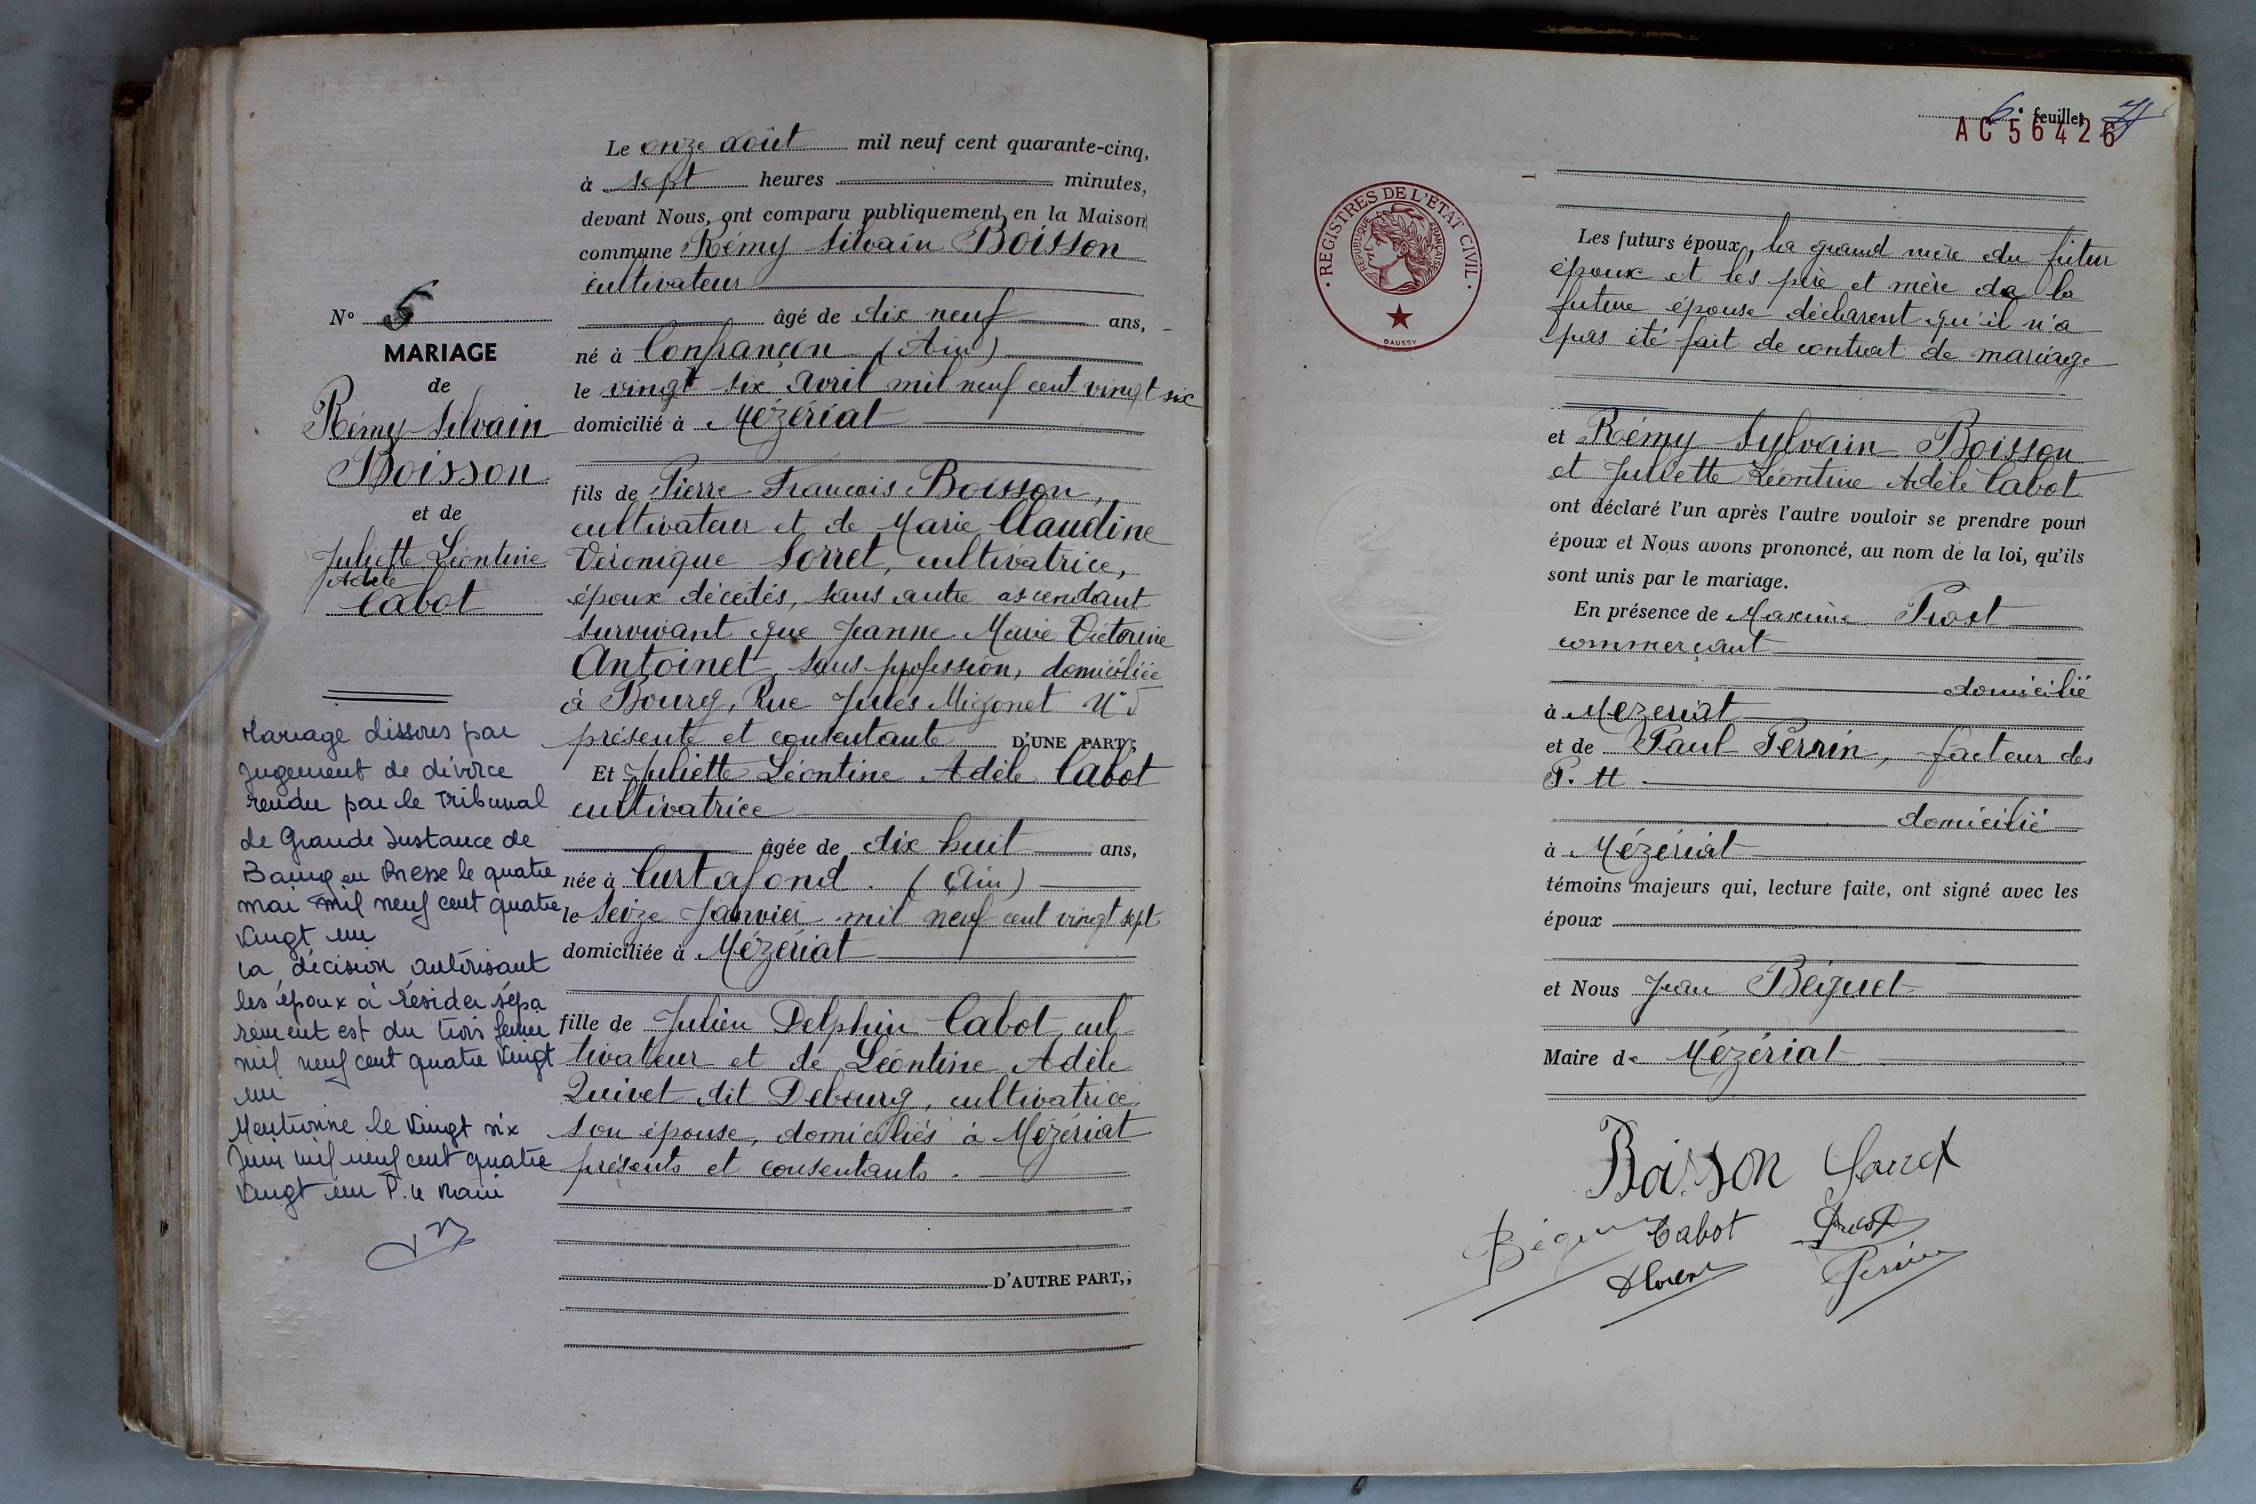 N° 5
MARIAGE
de
Rémy Silvain
Boisson
et de
Juliette Léontine
Adèle
Cabot
Mariage dissous par
Jugement de divorce
rendu par le Tribunal
de Grande Instance de
Bourg en Bresse le quatre
mai mil neuf cent quatre
vingt un
la décision autorisant
les époux à résider sépa
rément est du trois
mil neuf cent quatre vingt
un
Mentionné le vingt six
Juin mil neuf cent quatre
vingt un P. le Maire
Le onze août mil neuf cent quarante-cinq,
à sept heures minutes,
devant Nous, ont comparu publiquement en la Maison
commune Rémy Silvain Boisson
cultivateur
âgé de dix neuf ans,
né à Confrançon (Ain)
le vingt six avril mil neuf cent vingt six
domicilié à Mézériat
fils de Pierre François Boisson,
cultivateur et de Marie Claudine
Véronique Sorret, cultivatrice,
époux décédés, sans autre ascendant
survivant que Jeanne Marie Victorine
Antoinet, sans profession, domiciliée
à Bourg, Rue Jules Migonet N° 5
présente et consentante D'UNE PART;
Et Juliette Léontine Adèle Cabot
cultivatrice
âgée de dix huit ans,
née à Curtafond. (Ain)
le seize Janvier mil neuf cent vingt sept
domiciliée à Mézériat
fille de Julien Delphin Cabot, cul
tivateur et de Léontine Adèle
Quivet dit Debourg, cultivatrice
son épouse, domiciliés à Mézériat
présents et consentants.
D'AUTRE PART,;
6e feuillet
AC 56426
REGISTRES DE L'ETAT CIVIL
REPUBLIQUE FRANÇAISE
DAUSSY
Les futurs époux, la grand mère du futur
époux et les père et mère de la
future épouse déclarent qu'il n'a
pas été fait de contrat de mariage
et Rémy Sylvain Boisson
et Juliette Léontine Adèle Cabot
ont déclaré l'un après l'autre vouloir se prendre pour
époux et Nous avons prononcé, au nom de la loi, qu'ils
sont unis par le mariage.
En présence de Maxime Prost
commerçant
domicilié
à Mezeriat
et de Paul Perrin, facteur des
P. tt
domicilié
à Mézériat
témoins majeurs qui, lecture faite, ont signé avec les
époux
et Nous Jean Béguet
Maire de Mézériat
Boisson
Cabot
Prost
Perrin